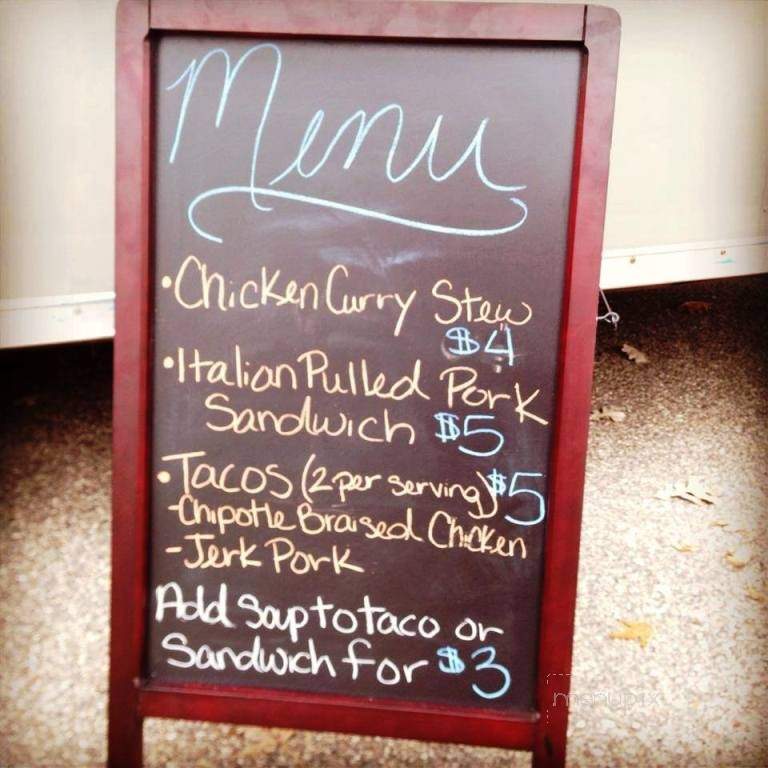 Menu
• Chicken Curry Stew
$4
• Italian Pulled Pork
Sandwich $5
• Tacos (2 per serving) $5
- Chipotle Braised Chicken
- Jerk Pork
Add Soup to taco or
Sandwich for $3
menupix